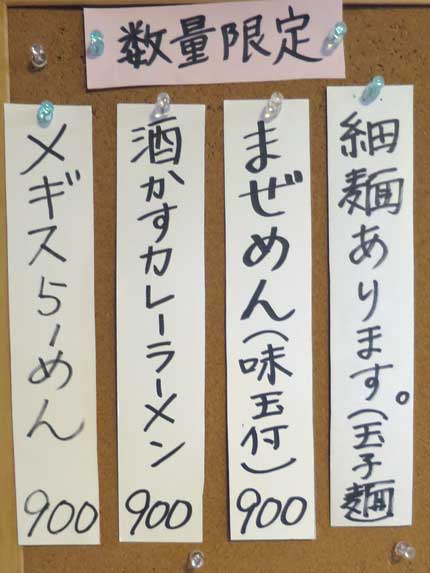 数量限定
細麺あります。(玉子麺)
まぜめん(味玉付)900
酒かすカレーラーメン900
メギスらーめん900